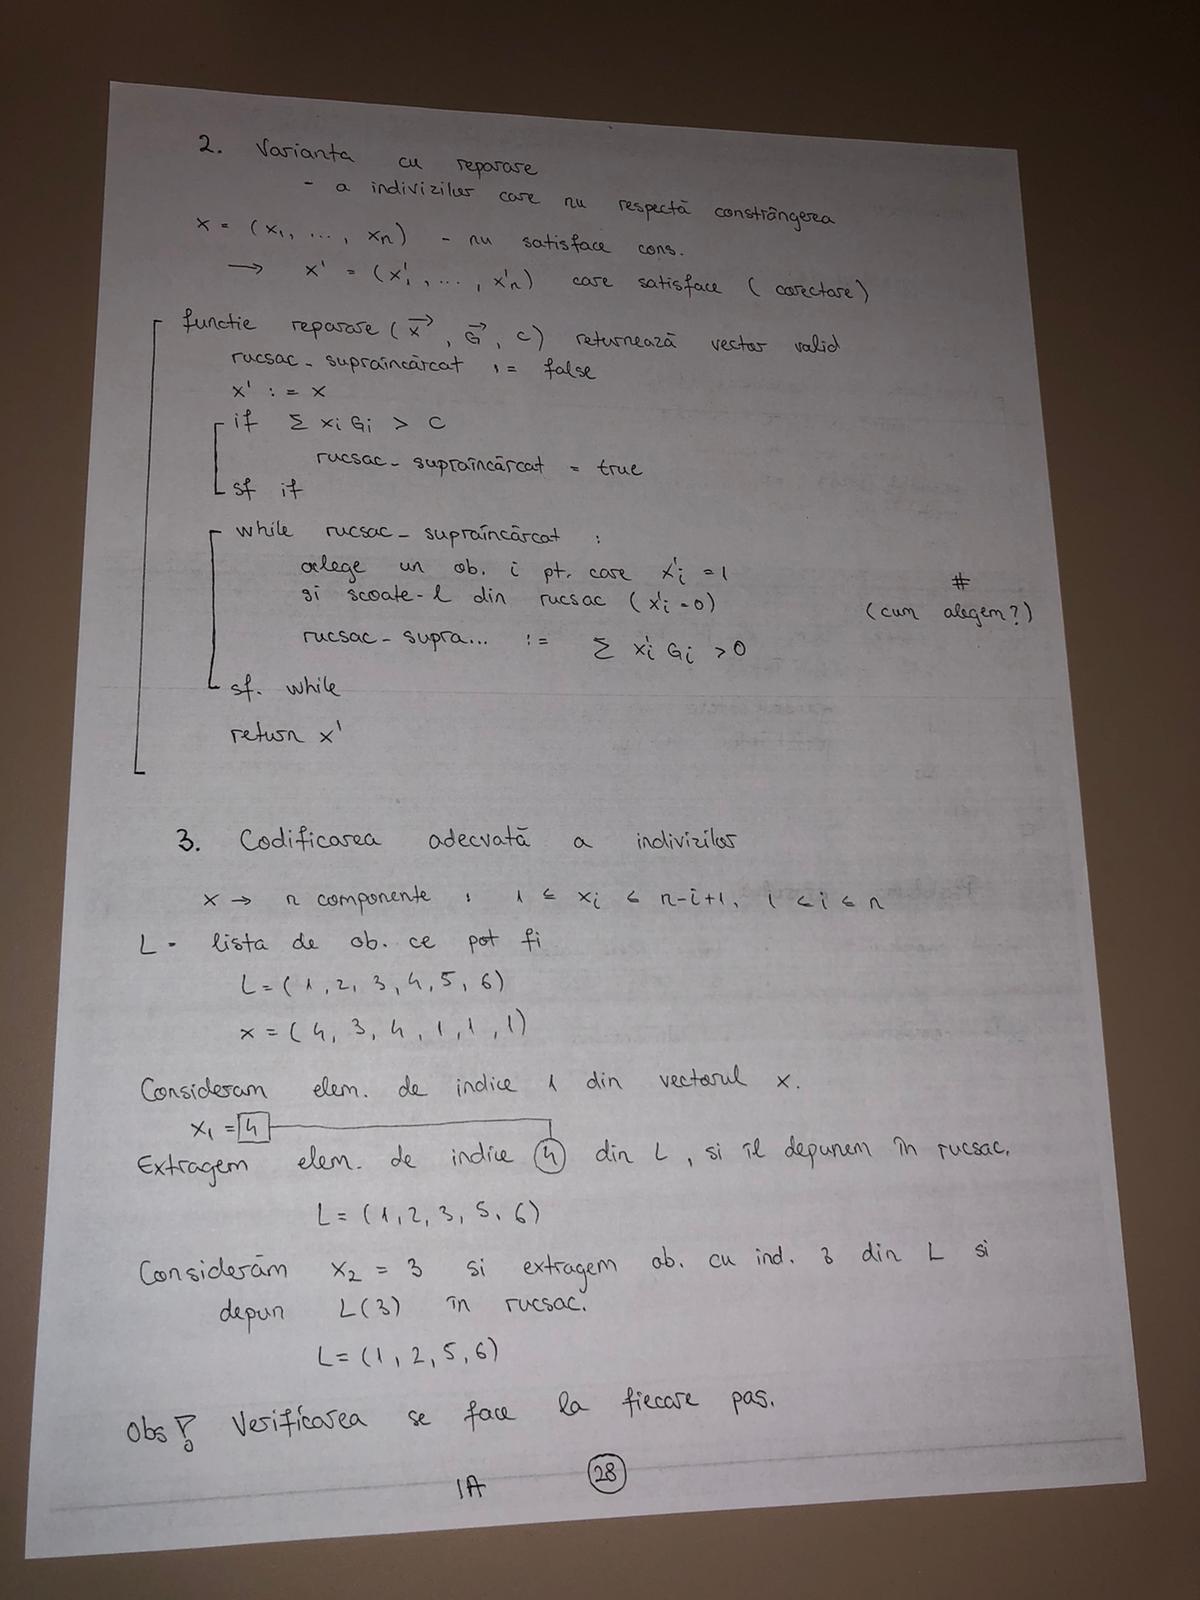 2. Varianta cu reparare
- a indivizilor care nu respectă constrângerea
x = (x1, ..., xn) - nu satisface cons.
→ x' = (x'1, ..., x'n) care satisface (corectare)
functie reparare (x→, G→, C) returnează vector valid
rucsac_supraîncărcat := false
x' := x
if Σ xi Gi > C
rucsac_supraîncărcat = true
sf if
while rucsac_supraîncărcat :
alege un ob. i pt. care x'i = 1
si scoate-l din rucsac (x'i = 0) # (cum alegem?)
rucsac_supra... := Σ x'i Gi > 0
sf. while
return x'
3. Codificarea adecvată a indivizilor
x → n componente : 1 ≤ xi ≤ n-i+1, 1 ≤ i ≤ n
L = lista de ob. ce pot fi
L = (1, 2, 3, 4, 5, 6)
x = (4, 3, 4, 1, 1, 1)
Consideram elem. de indice 1 din vectorul x.
x1 = 4
Extragem elem. de indice 4 din L, si îl depunem în rucsac.
L = (1, 2, 3, 5, 6)
Considerăm x2 = 3 si extragem ob. cu ind. 3 din L si
depun L(3) în rucsac.
L = (1, 2, 5, 6)
Obs! Verificarea se face la fiecare pas.
IA 28